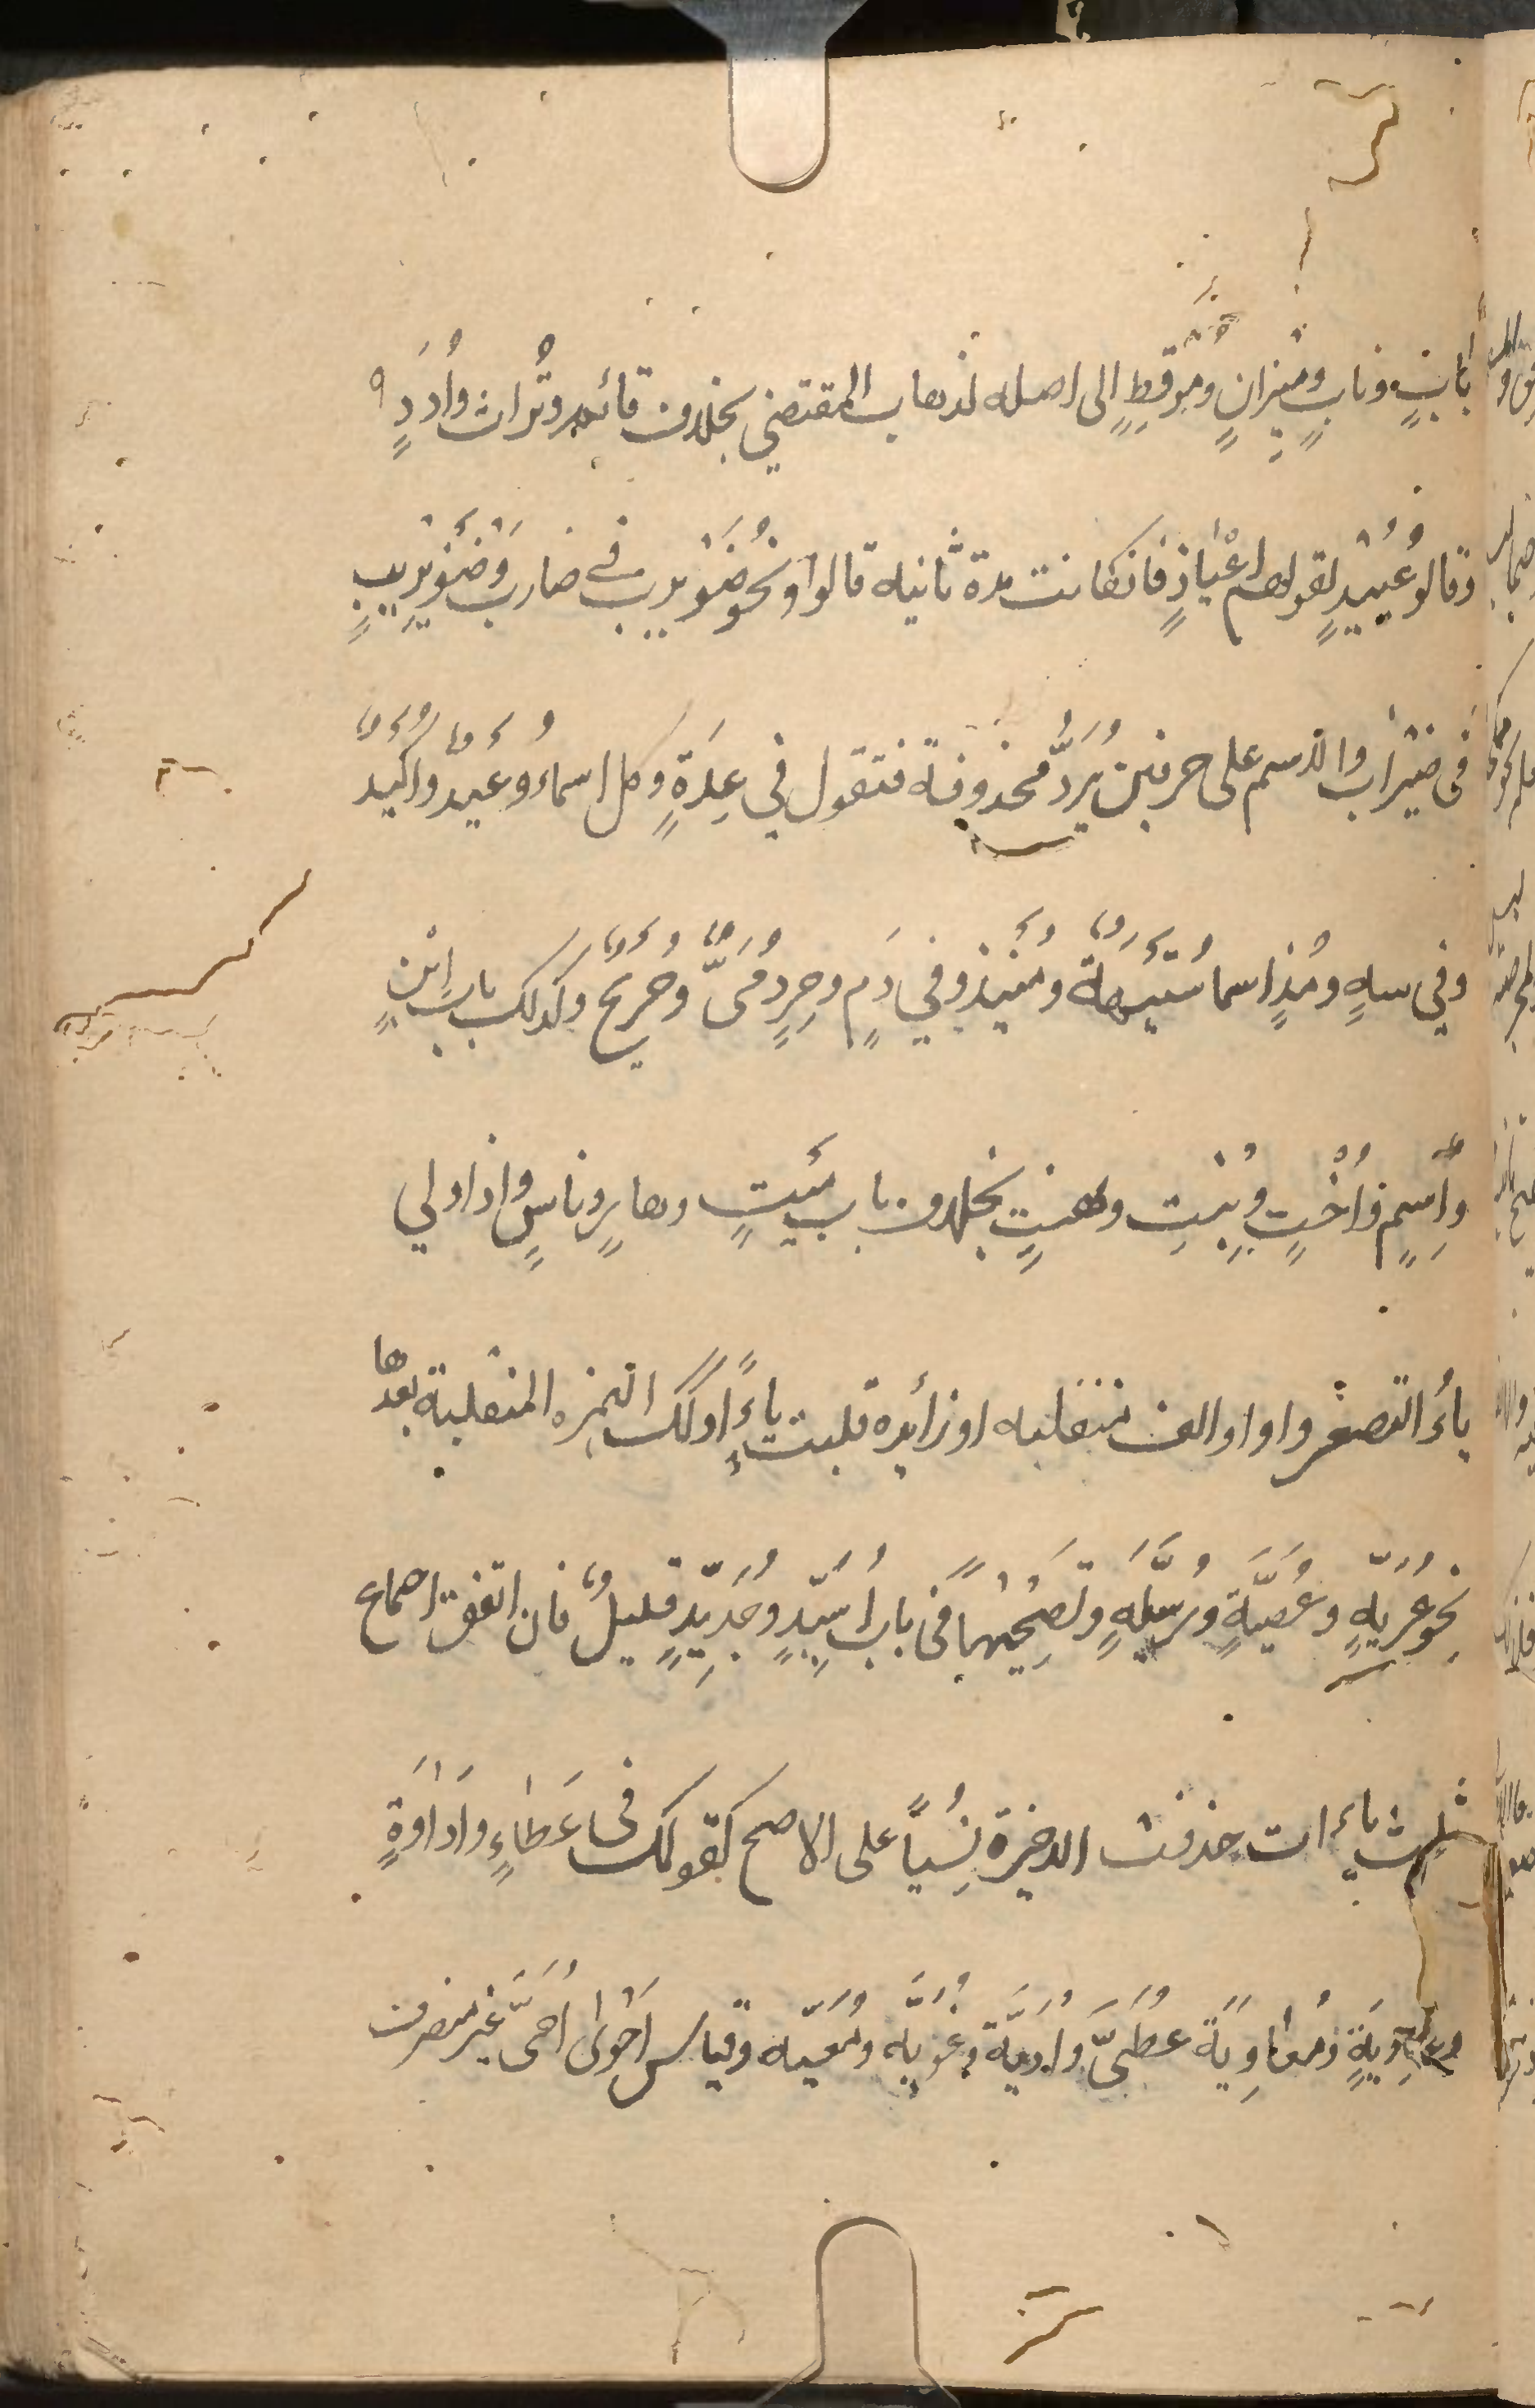 بابٍ ونابٍ وميزانٍ وموقظٍ الى اصله لذهاب المقتضي بخلاف قائم وتراث واُدَدٍ
وقالو عُيَيْدٍ لقولهم اعْيادٍ فان كانت مدة ثانيه قالواو نحو ضُوَيْرِب في ضارب وضُوَيْرِيبٍ
فى ضيراب والاسم على حرفين يُرَدُّ محذوفة فتقول في عِدَةٍ وكل اسماء وُعَيْدٌ واُكَيْد
وفي سهٍ ومُذٍ اسما سُتَيْهَةٌ ومُنَيْذٌ وفي دَمٍ وحِرٍ دُمَىٌّ وحُرَيْحٌ وكذلك باب ابْنٍ
واِسمٍ واُخْتٍ وبِنْتٍ وهنتٍ بخلاف باب مَيْتٍ وهارٍ وناسٍ واذا ولي
ياءُ التصغير واو او الف منقلبه او زائدة قلبت ياءً وكذلك الهمزه المنقلبة بعدها
نحو عُرَيَّةٍ وعُصَيَّةٍ ورُسَيِّلَةٍ وتصحيحها فى باب اُسَيِّدٍ وجُدَيِّدٍ قليلٌ فان اتفق اجماع
ثلث ياءات حذفت الاخيرة نِسْياً على الاصح كقولك فى عَطاءٍ واداوَةٍ
وغاوِيَةٍ ومُعاوِيَةٌ عُطَىٌّ واُدَيَّةٌ وغُوَيَّة ومُعَيَّه وقياس اَحْوى اُحَىَّ غير منصرف